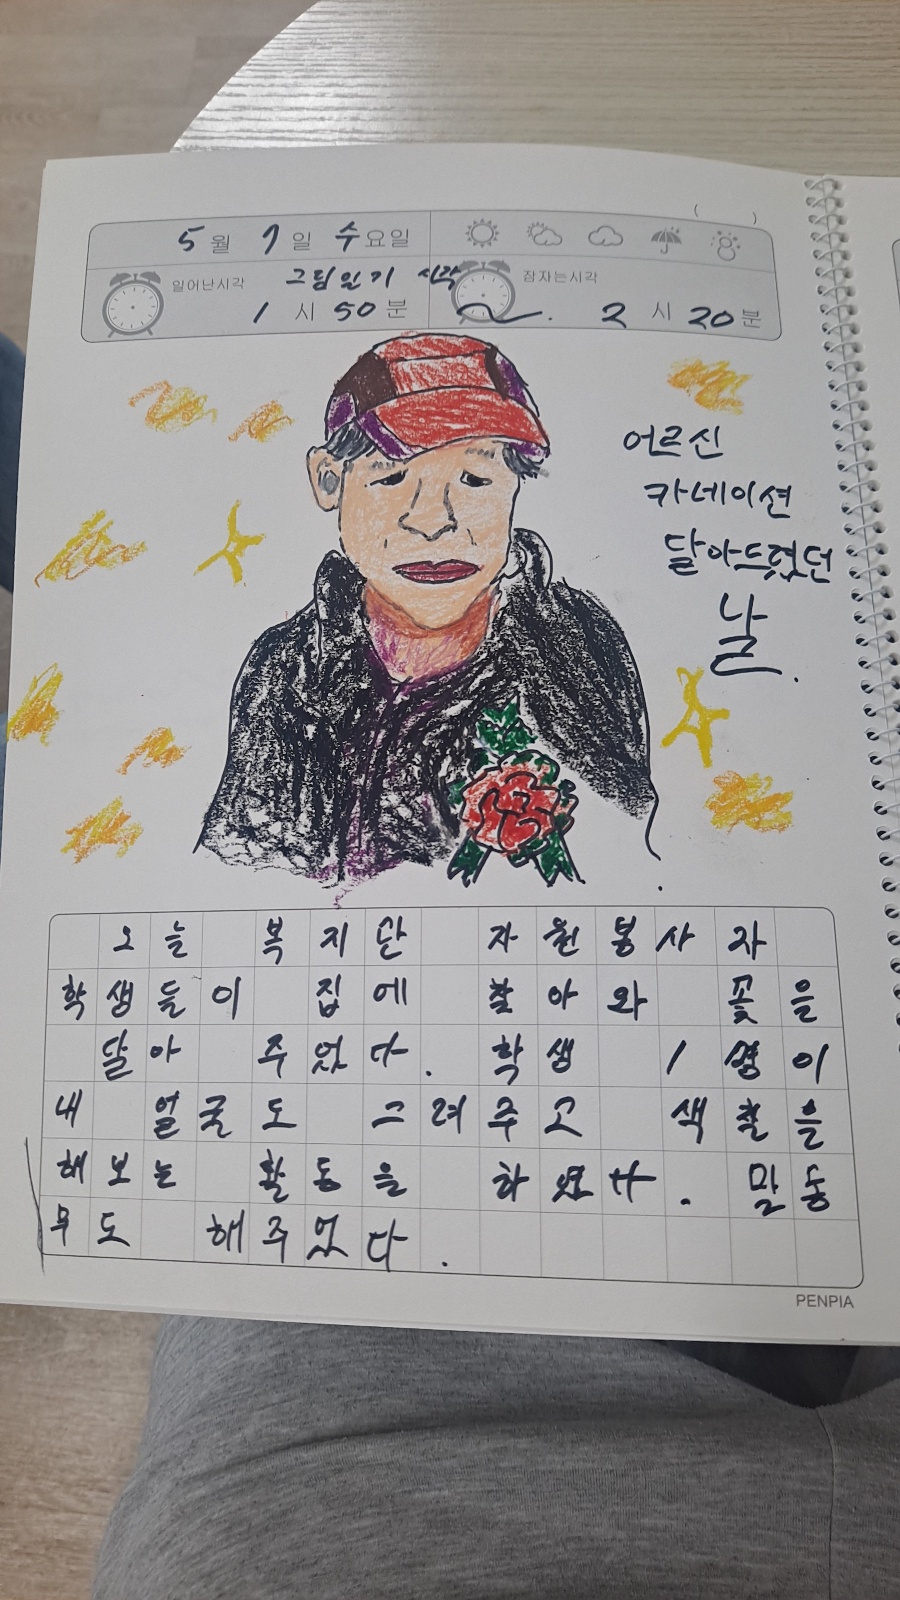 5월 7일 수요일
일어난시각 그림일기 시각 잠자는시각
1시 50분 ~. 2시 20분
어르신
카네이션
달아드렸던
날.
오늘 복지단 자원봉사자
학생들이 집에 찾아와 꽃을
달아 주었다. 학생 1명이
내 얼굴도 그려주고 색칠을
해보는 활동을 하였다. 말동
무도 해주었다.
PENPIA